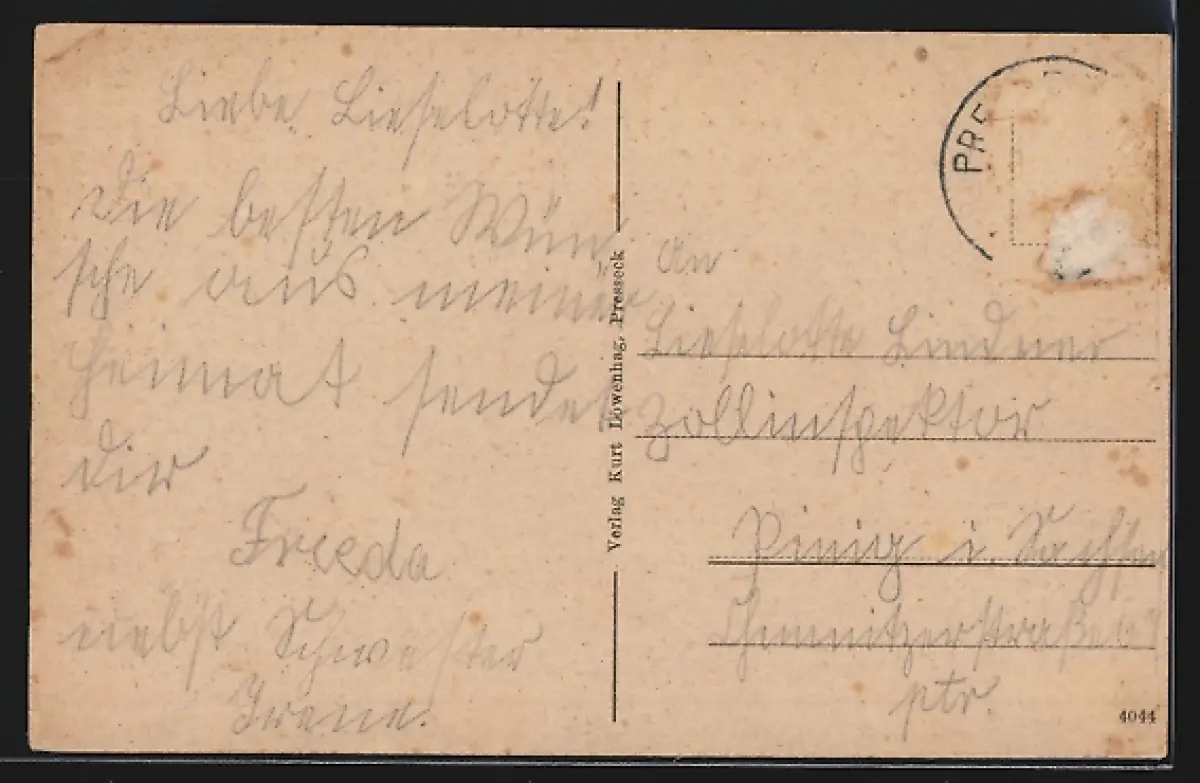 Liebe Lieselotte!
Die besten Wün
sche aus meiner
Heimat sendet
dir
Freeda
nebst Schwester
Irene.
Verlag Kurt Löwenhag, Presseck
PRE
An
Lieselotte Lindner
Zollinspektor
Pinig i. Sachsen
Chemnitzerstraße
ptr.
4044